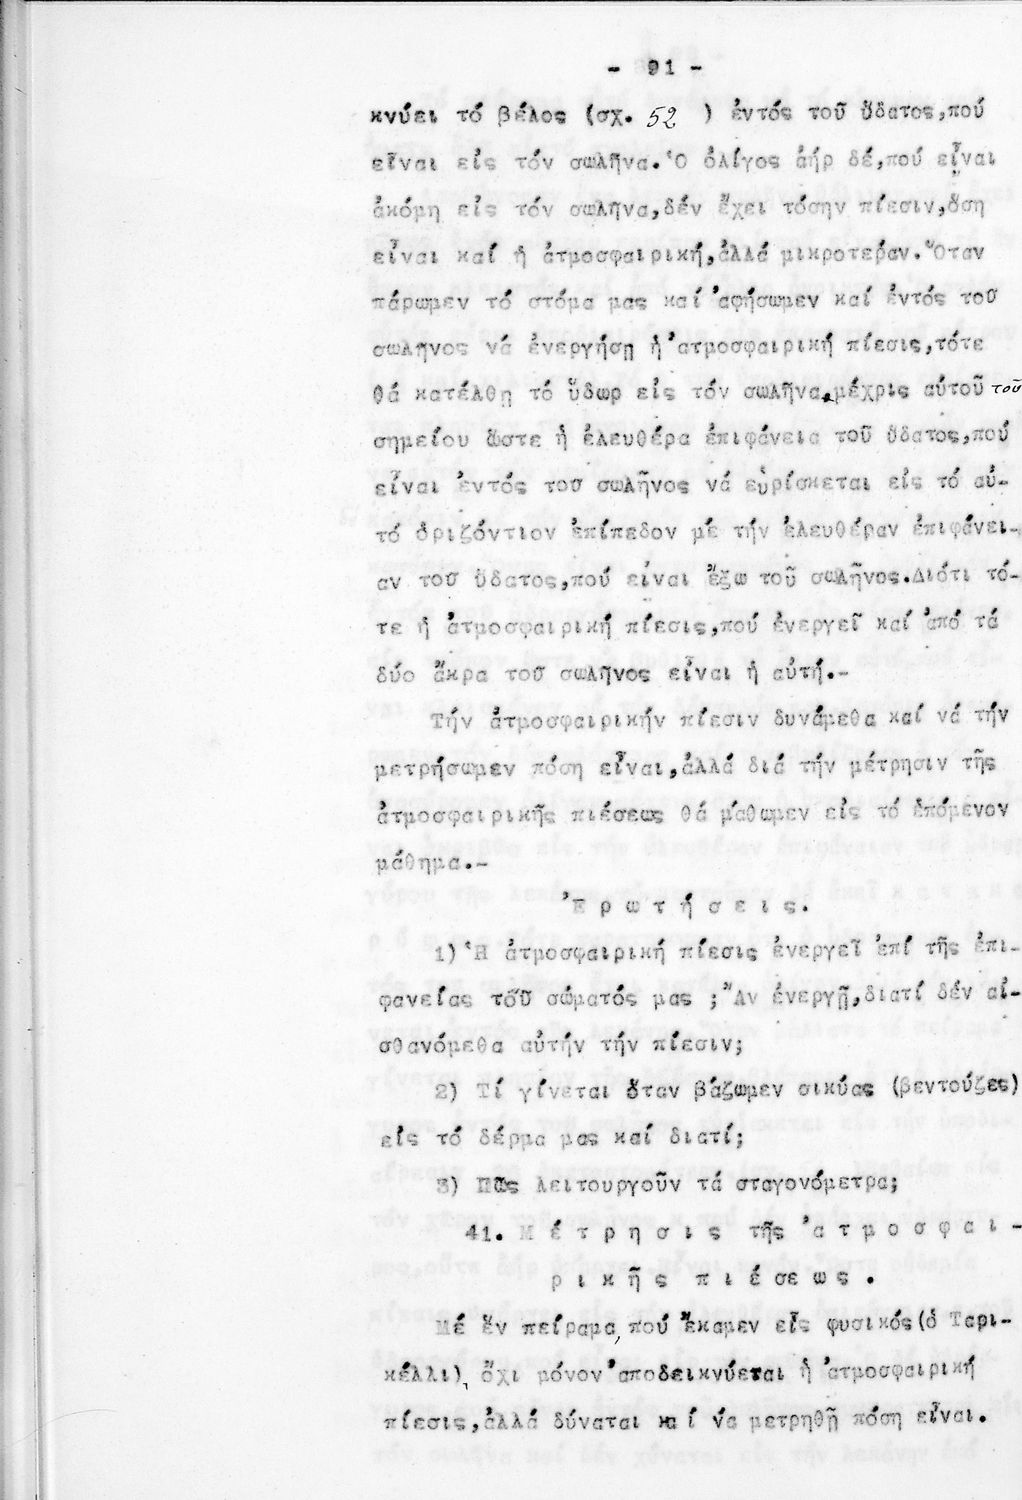 - 91 -
κνύει τό βέλος (σχ. 52 ) ἐντός τοῦ ὕδατος,πού
εἶναι εἰς τόν σωλῆνα.Ὁ ὀλίγος ἀήρ δέ,πού εἶναι
ἀκόμη εἰς τόν σωλῆνα,δέν ἔχει τόσην πίεσιν,ὅση
εἶναι καί ἡ ἀτμοσφαιρική,ἀλλά μικροτέραν.Ὅταν
πάρωμεν τό στόμα μας καί ἀφήσωμεν καί ἐντός τοῦ
σωλῆνος νά ἐνεργήσῃ ἡ ἀτμοσφαιρική πίεσις,τότε
θά κατέλθῃ τό ὕδωρ εἰς τόν σωλῆνα,μέχρις αὐτοῦ τοῦ
σημείου ὥστε ἡ ἐλευθέρα ἐπιφάνεια τοῦ ὕδατος,πού
εἶναι ἐντός τοῦ σωλῆνος νά εὑρίσκεται εἰς τό αὐ-
τό ὁριζόντιον ἐπίπεδον μέ τήν ἐλευθέραν ἐπιφάνει-
αν τοῦ ὕδατος,πού εἶναι ἔξω τοῦ σωλῆνος.Διότι τό-
τε ἡ ἀτμοσφαιρική πίεσις,πού ἐνεργεῖ καί ἀπό τά
δύο ἄκρα τοῦ σωλῆνος εἶναι ἡ αὐτή.-
Τήν ἀτμοσφαιρικήν πίεσιν δυνάμεθα καί νά τήν
μετρήσωμεν πόση εἶναι,ἀλλά διά τήν μέτρησιν τῆς
ἀτμοσφαιρικῆς πιέσεως θά μάθωμεν εἰς τό ἑπόμενον
μάθημα.-
Ἐ ρ ω τ ή σ ε ι ς.
1) Ἡ ἀτμοσφαιρική πίεσις ἐνεργεῖ ἐπί τῆς ἐπι-
φανείας τοῦ σώματός μας ;Ἄν ἐνεργῇ,διατί δέν αἰ-
σθανόμεθα αὐτήν τήν πίεσιν;
2) Τί γίνεται ὅταν βάζωμεν σικύας (βεντούζες)
εἰς τό δέρμα μας καί διατί;
3) Πῶς λειτουργοῦν τά σταγονόμετρα;
41. Μ έ τ ρ η σ ι ς τῆς ἀ τ μ ο σ φ α ι -
ρ ι κ ῆ ς π ι έ σ ε ω ς .
Μέ ἕν πείραμα, πού ἔκαμεν εἷς φυσικός(ὁ Ταρι-
κέλλι), ὄχι μόνον ἀποδεικνύεται ἡ ἀτμοσφαιρική
πίεσις,ἀλλά δύναται κα ί νά μετρηθῇ πόση εἶναι.